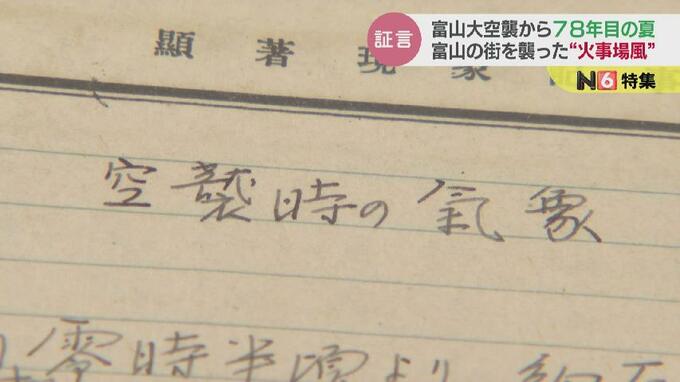 証言
富山大空襲から78年目の夏
富山の街を襲った“火事場風”
N6 特集
顯著現象
空襲時の氣象
零時半頃より